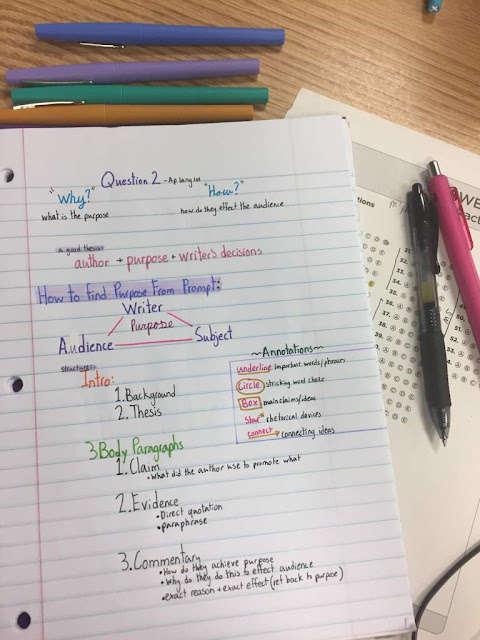 Question 2 - Ap lang
"Why?" "How?"
what is the purpose how do they effect the audience
a good thesis:
author + purpose + writer's decisions
How to find Purpose From Prompt:
Writer
Purpose
Audience Subject
structure:
Intro:
1. Background
2. Thesis
~Annotations~
underline important words/phrases
Circle stricking word choice
Box main claims/ideas
Star* rhetorical devices
connect → connecting ideas
3 Body Paragraphs
1. Claim
• What did the author use to promote what
2. Evidence
• Direct quotation
• paraphrase
3. Commentary
• How do they achieve purpose
• Why do they do this to effect audience
• exact reason + exact effect (ref back to purpose)
31.
32.
33.
34.
35.